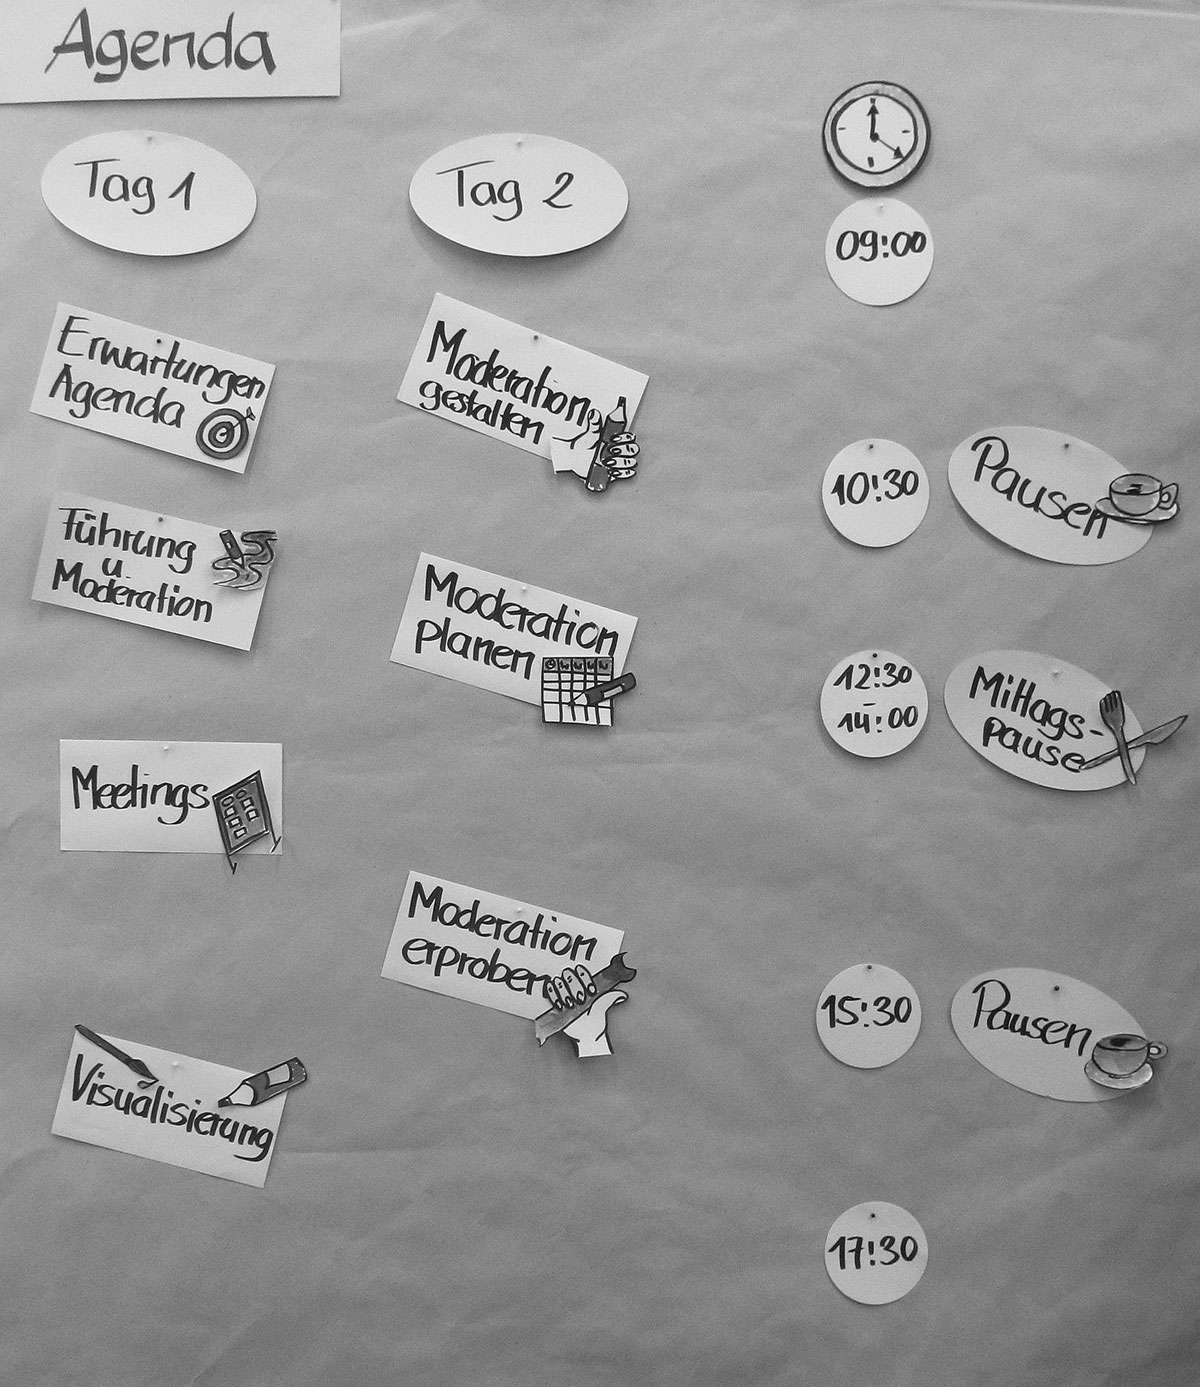 Agenda
Tag 1
Erwartungen
Agenda
Führung
u.
Moderation
Meetings
Visualisierung
Tag 2
Moderation
gestalten
Moderation
planen
Moderation
erproben
09:00
10:30
Pausen
12:30
-
14:00
Mittags-
pause
15:30
Pausen
17:30